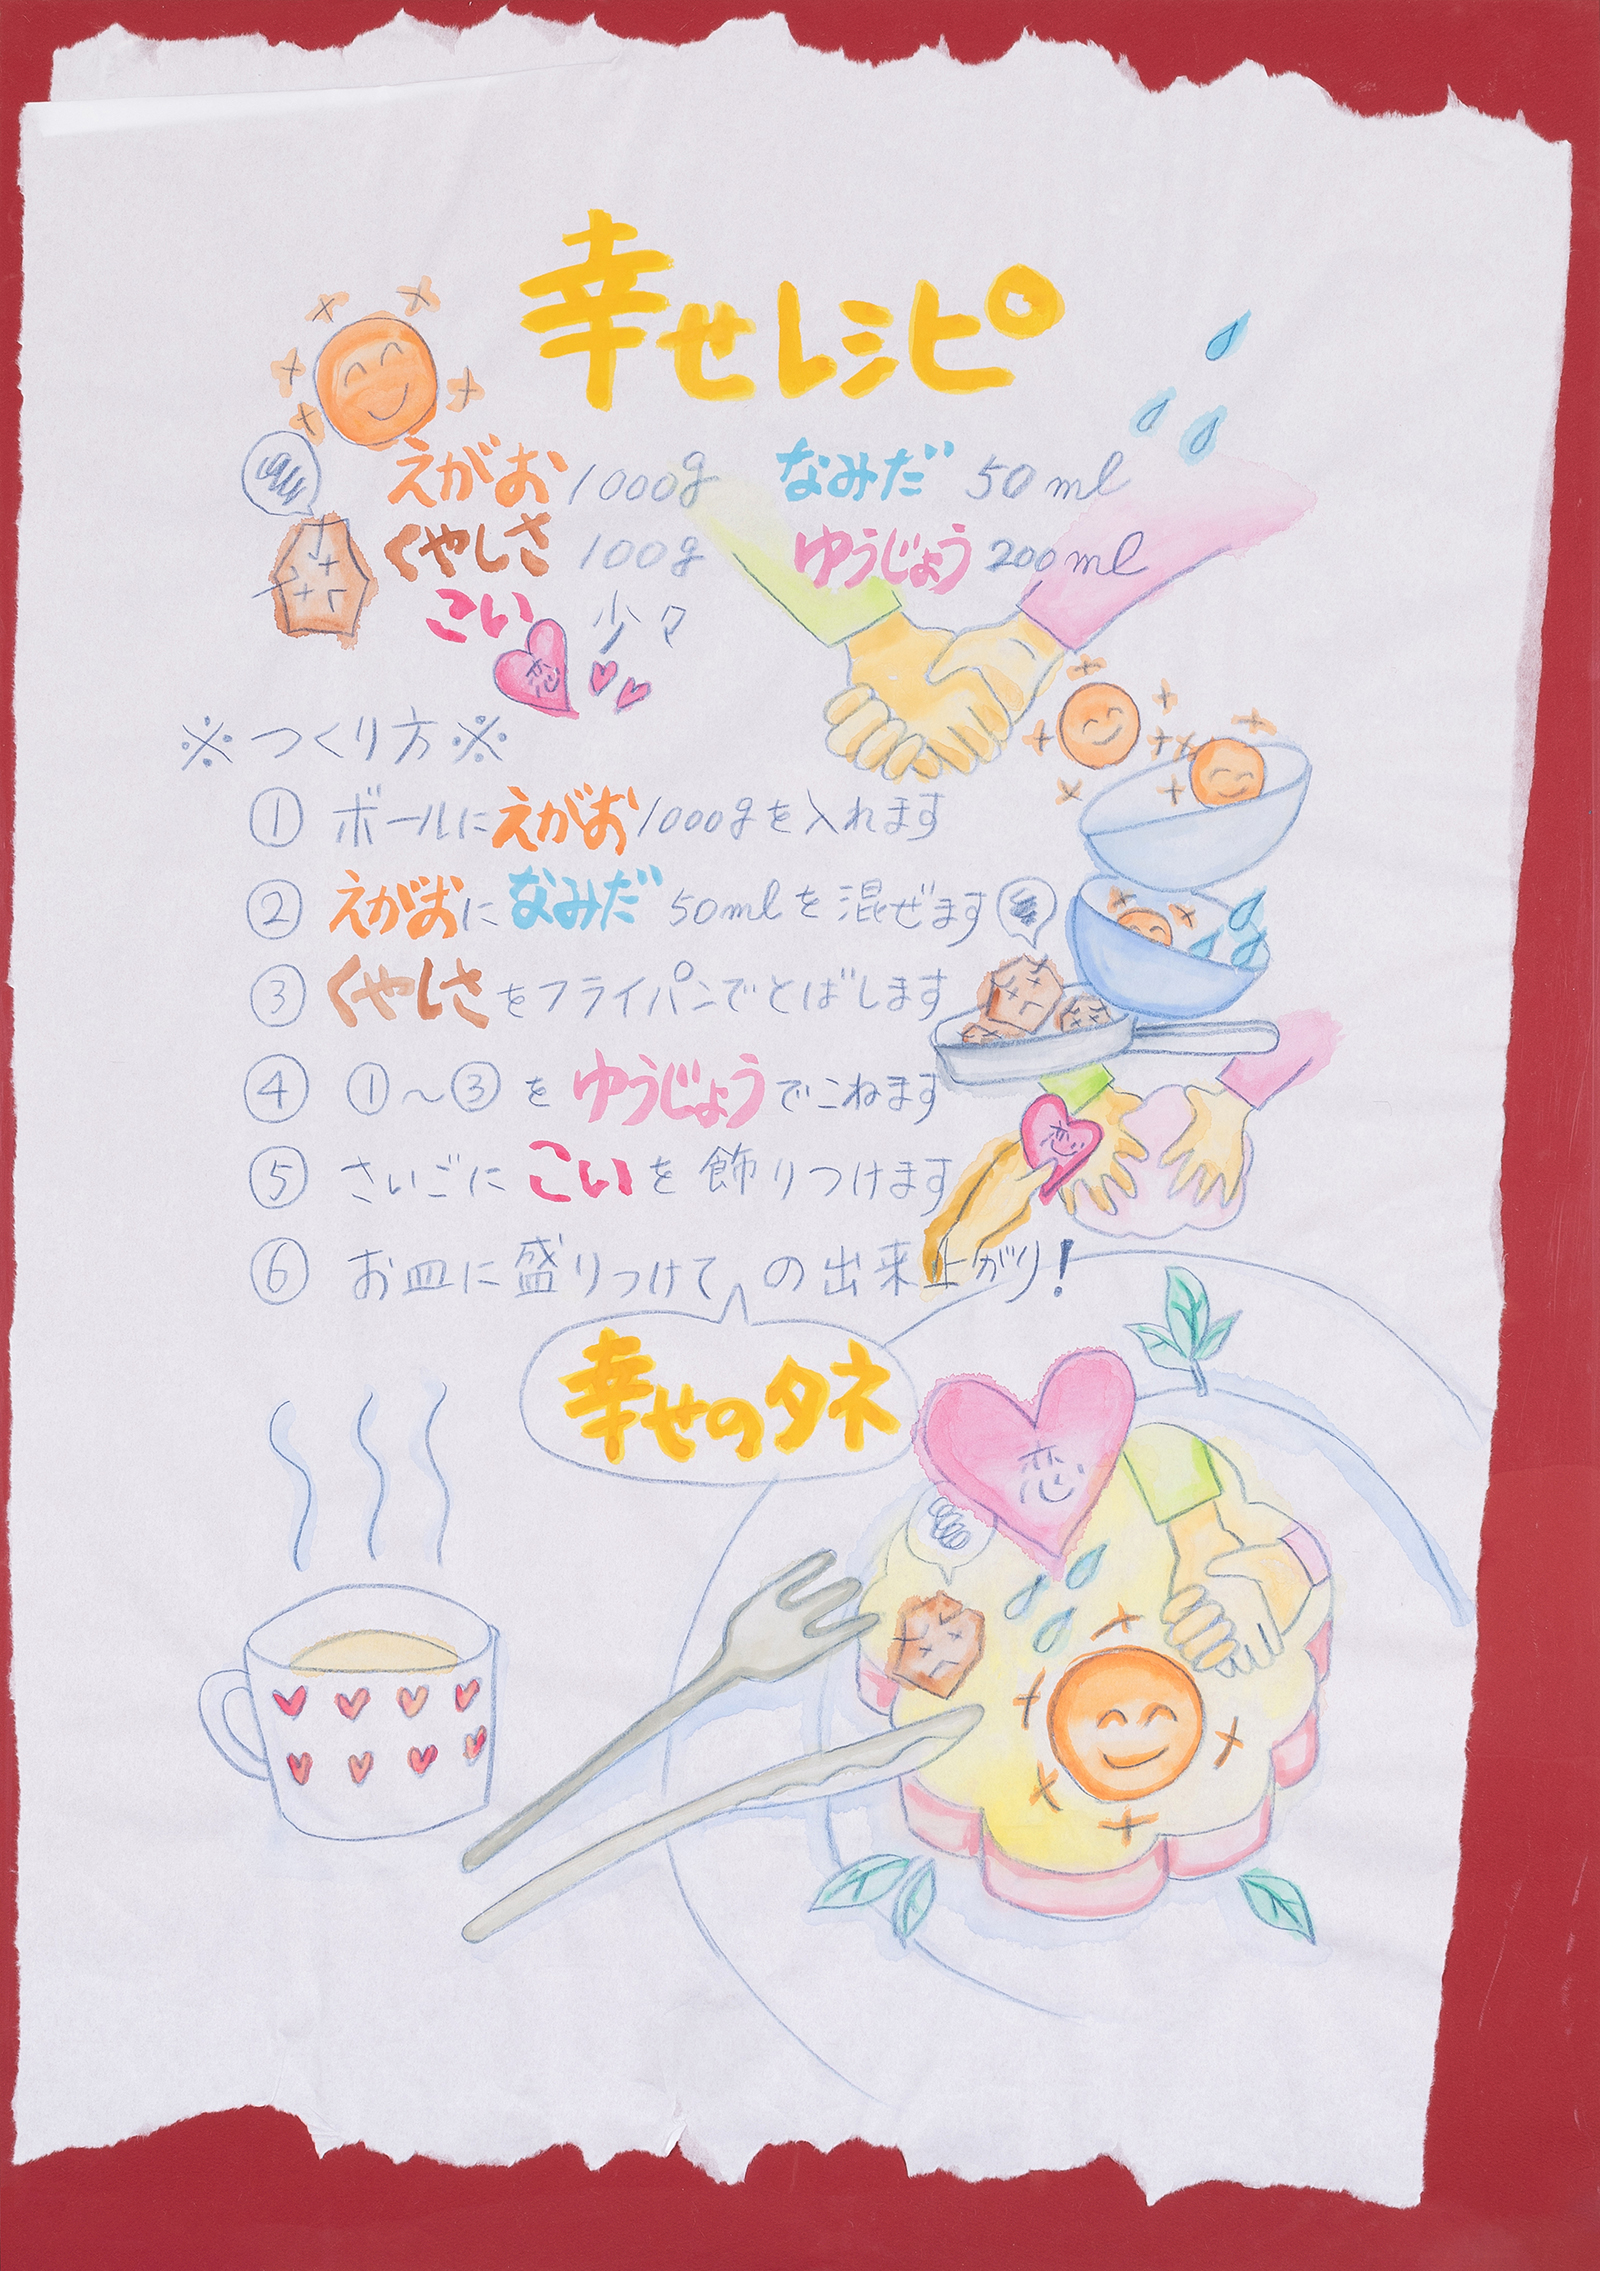 幸せレシピ
えがお 1000g なみだ 50ml
くやしさ 100g ゆうじょう 200ml
こい 少々
恋
※つくり方※
① ボールにえがお1000gを入れます
② えがおになみだ50mlを混ぜます
③ くやしさをフライパンでとばします
④ ①～③をゆうじょうでこねます
⑤ さいごにこいを飾りつけます
恋
⑥ お皿に盛りつけての出来上がり!
幸せのタネ
恋